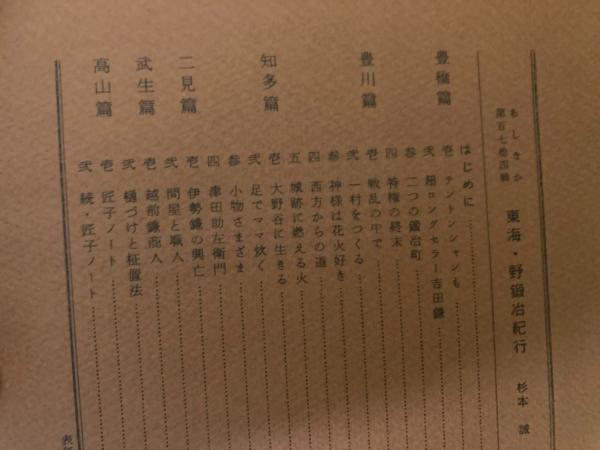 あしなか
第百七拾四輯
東海・野鍛冶紀行 杉本 誠
はじめに
豊橋篇
壱 テントンシャンも
弐 超ロングセラー吉田鎌
参 二つの鍛冶町
四 特権の終末
豊川篇
壱 戦乱の中で
弐 一村をつくる
参 神様は花火好き
四 西方からの道
五 城跡に燃える火
知多篇
壱 大野谷に生きる
弐 足でママ炊く
参 小物さまざま
四 津田助左衛門
二見篇
壱 伊勢鎌の興亡
弐 問屋と職人
武生篇
壱 越前鎌商人
弐 樋づけと柾置法
高山篇
壱 匠子ノート
弐 続・匠子ノート